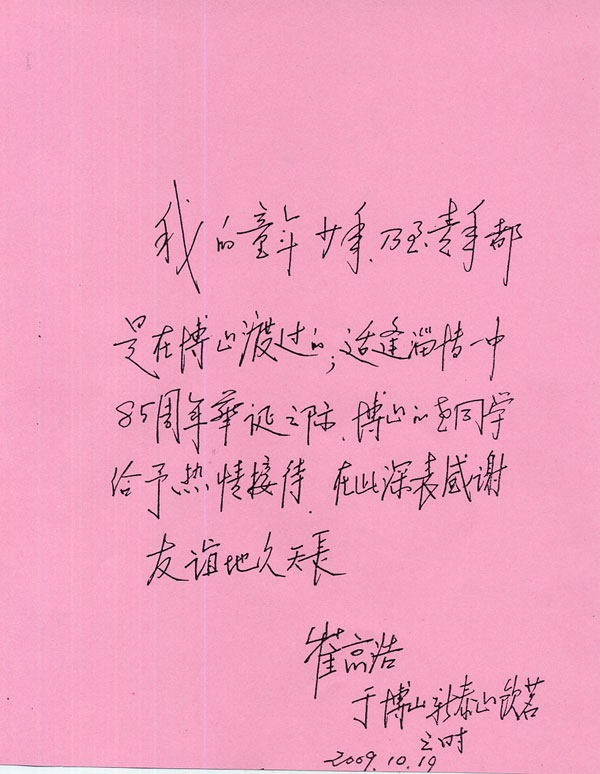 我的童年少年.乃至青年都
是在博山渡过的;适逢淄博一中
85周年华诞之际.博山的老同学
给予热情接待.在此深表感谢
友谊地久天長
崔高浩
于博山新泰山饮茗
之时
2009.10.19